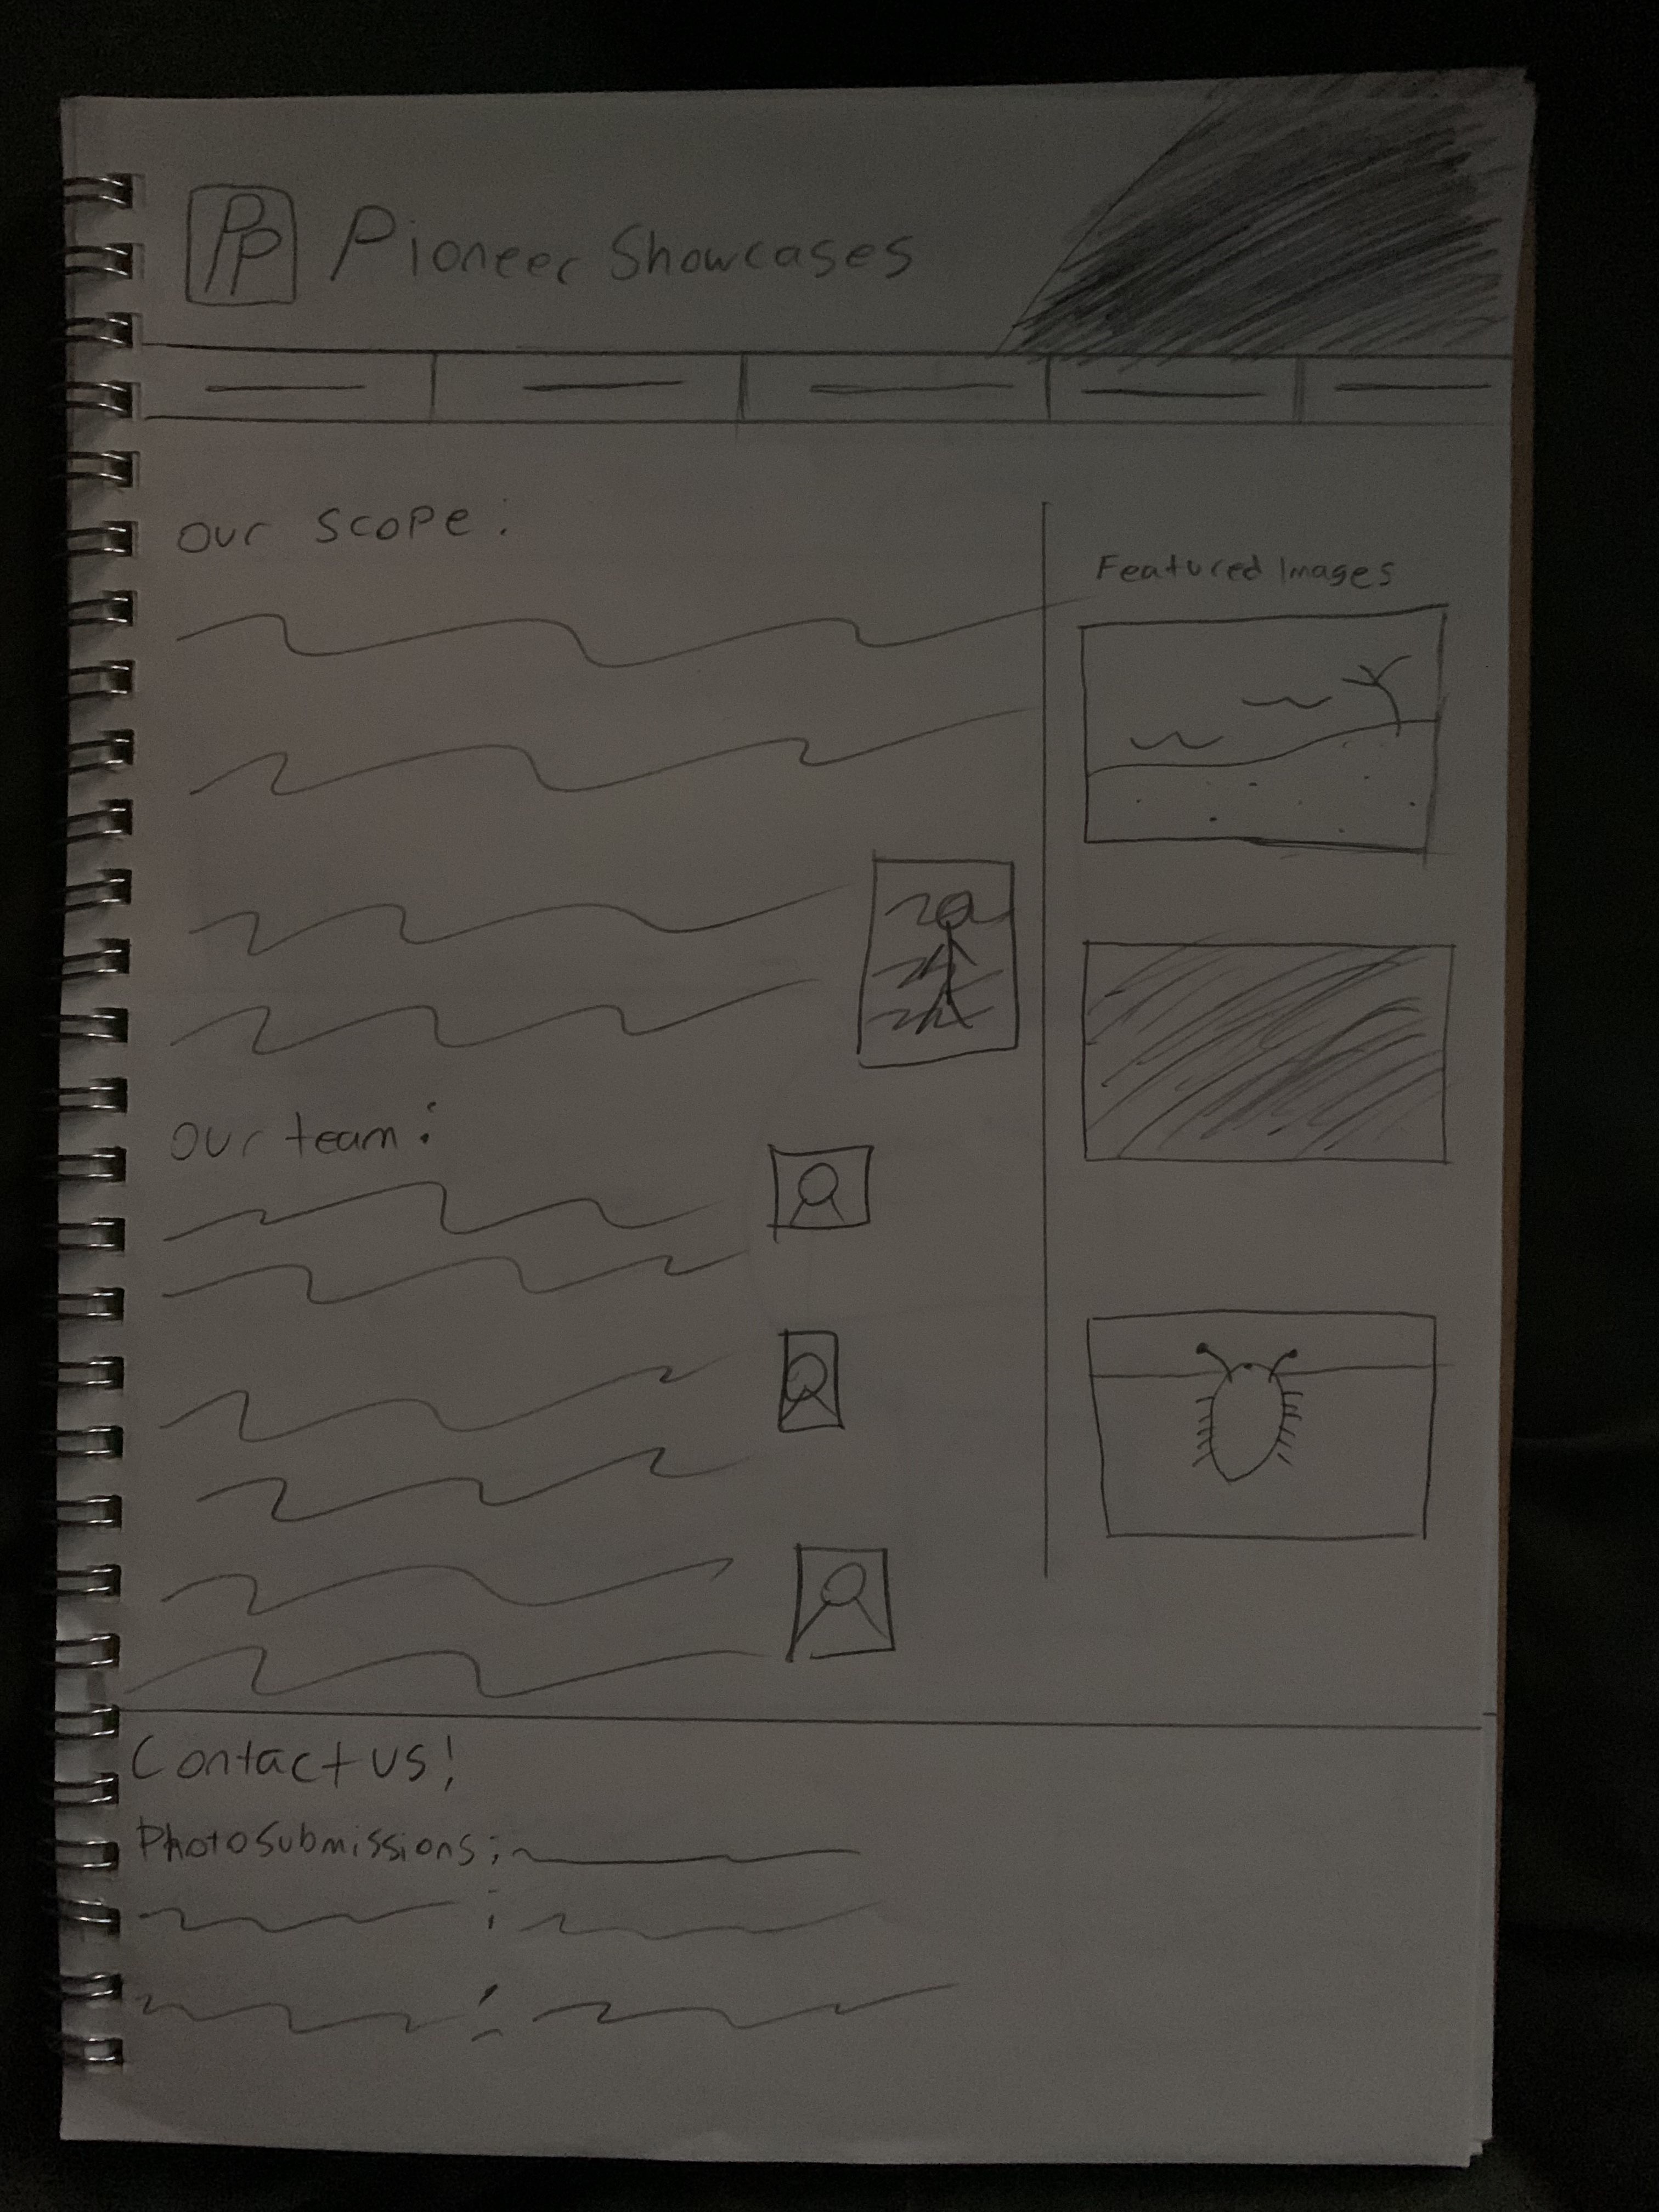 PP Pioneer Showcases
our scope:
Featured Images
our team:
Contact us!
Photo Submissions: